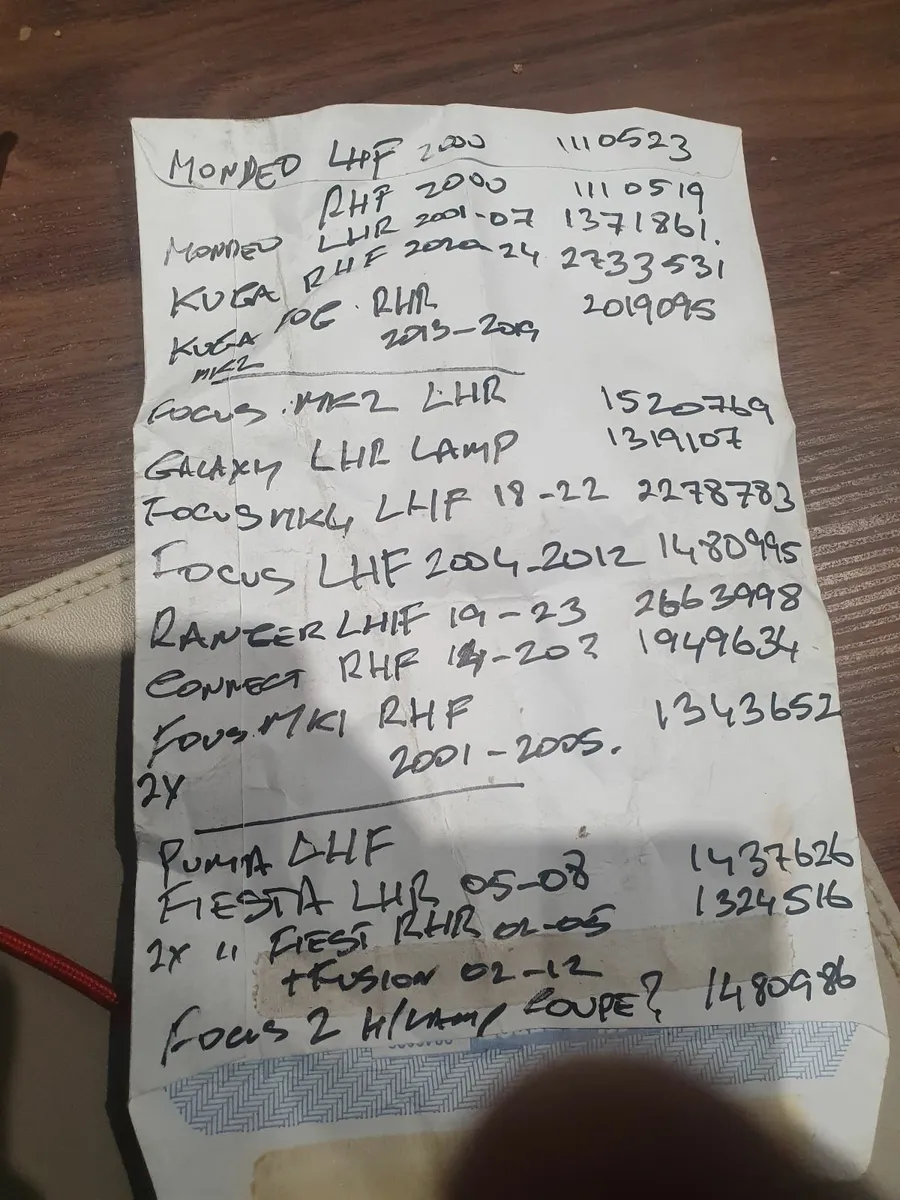 MONDEO LHF 2000 1110523
RHF 2000 1110519
MONDEO LHR 2001-07 1371861.
KUGA RHF 2020-24 2733531
KUGA FOG. RHR 2019095
MK2 2013-2019
FOCUS. MK2 LHR 1520769
GALAXY LHR LAMP 1319107
FOCUS MK4 LHF 18-22 2278783
FOCUS LHF 2004-2012 1480995
RANGER LHF 19-23 2663998
CONNECT RHF 14-20? 1949634
FOUS. MK1 RHF 1343652
2001-2005.
2X
PUMA LHF
FIESTA LHR 05-08 1437626
2X " FIEST RHR 02-05 1324516
+ FUSION 02-12
FOCUS 2 H/LAMP COUPE? 1480986